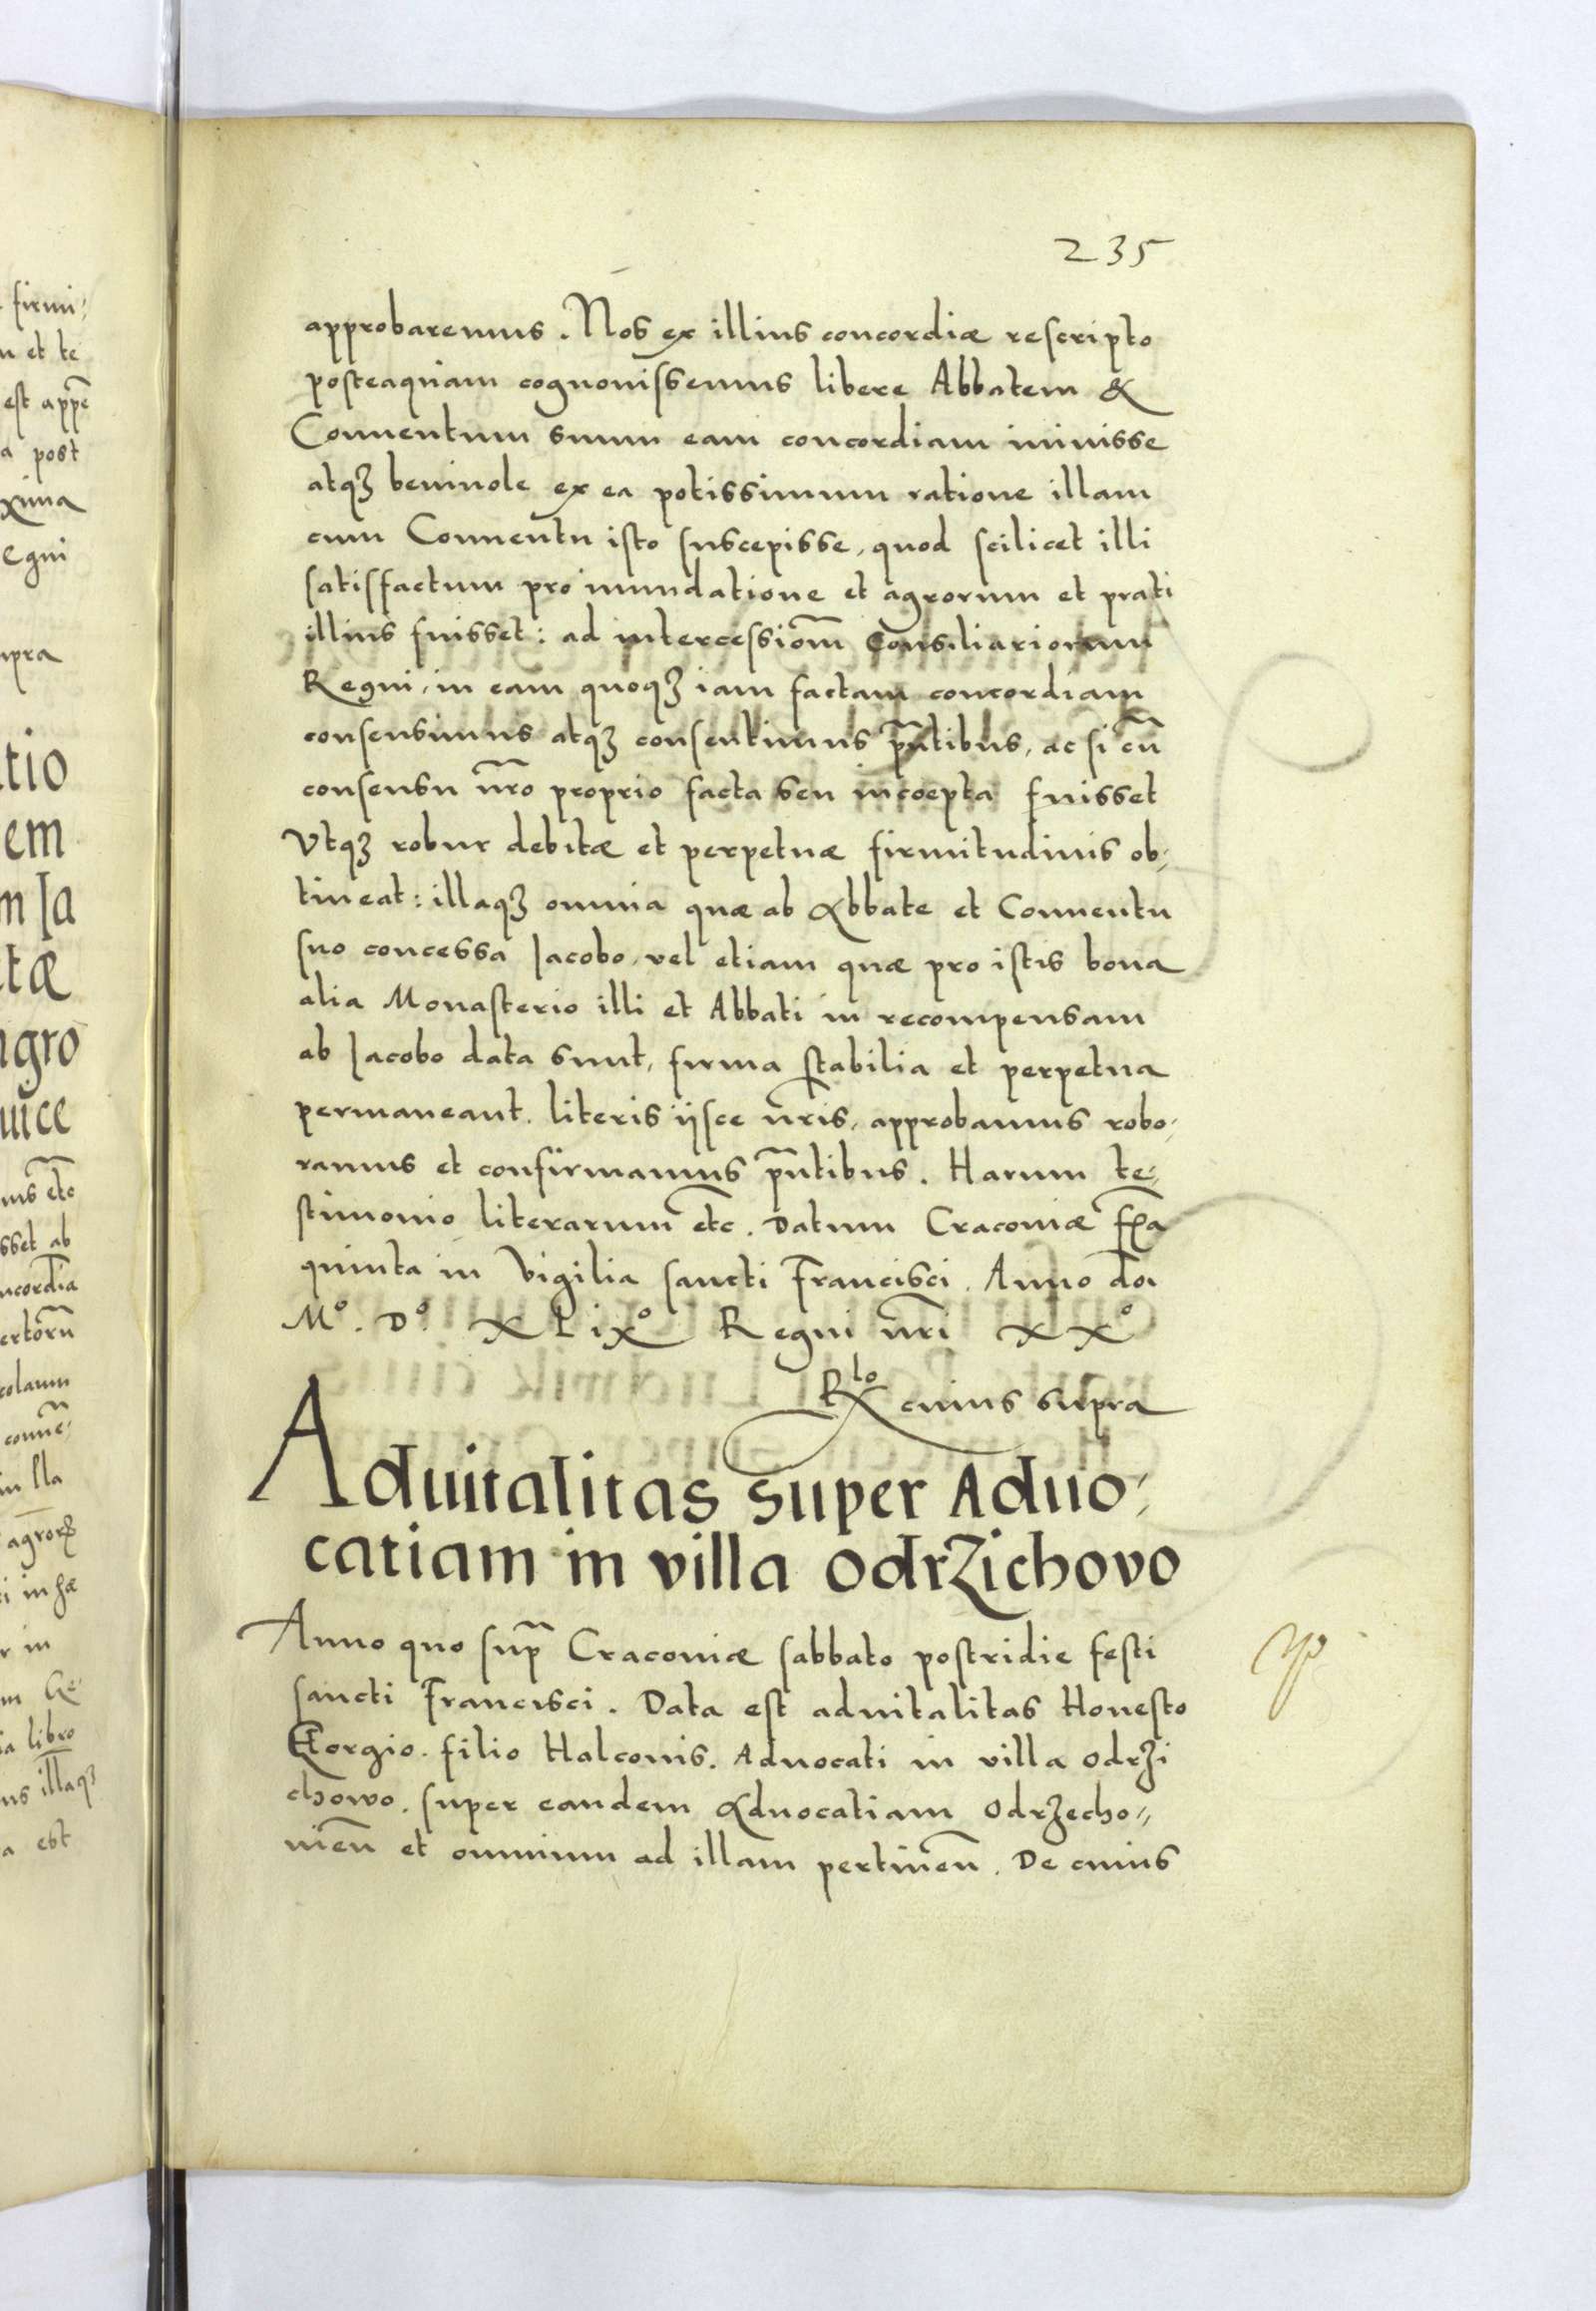 235
approbaremus. Nos ex illius concordiæ rescripto
posteaquam cognouissemus libere Abbatem &
Conuentum suum eam concordiam iniuisse
atqꝫ beniuole ex ea potissimum ratione illam
cum Conuentu isto suscepisse, quod scilicet illi
satisfactum pro inundatione et agrorum et prati
illius fuisset: ad intercessiom̃ Consiliariorum
Regni, in eam quoqꝫ iam factam concordiam
consensimus atqꝫ consentimus p̃ntibus, ac si cũ
consensu nr̃o proprio facta seu incoepta fuisset
Vtqꝫ robur debitæ et perpetuæ firmitudinis ob⸗
tineat: illaqꝫ omnia quæ ab Abbate et Conuentu
suo concessa Iacobo, vel etiam quæ pro istis bona
alia Monasterio illi et Abbati in recompensam
ab Iacobo data sunt, firma stabilia et perpetua
permaneant. literis ijsce nr̃is, approbamus robo⸗
ramus et confirmamus p̃ntibus. Harum te⸗
stimonio literarum etc̃. Datum Cracouiæ fr̃a
quinta in Vigilia sancti Francisci. Anno doĩ
Mº. Dº. XLixº Regni nr̃i XXº
Rˡᵒ cuius supra
Aduitalitas super Aduo⸗
catiam in villa Odrzichovo
Anno quo sup̃ Cracouiæ sabbato postridie festi
sancti Francisci. Data est aduitalitas Honesto
Georgio. filio Halconis. Aduocati in villa Odrzi
chowo. super eandem Aduocatiam Odrzecho⸗
uieñ et omnium ad illam pertineñ. De cuius
firmi⸗
et te
est appẽ
a post
xima
egni
upra
tio
em
m Ia
tæ
agro
uice
etc̃
sset ab
ncordia
colaum
conuẽ⸗
lla
i in hæ
r in
ia libro
illaqꝫ
a est